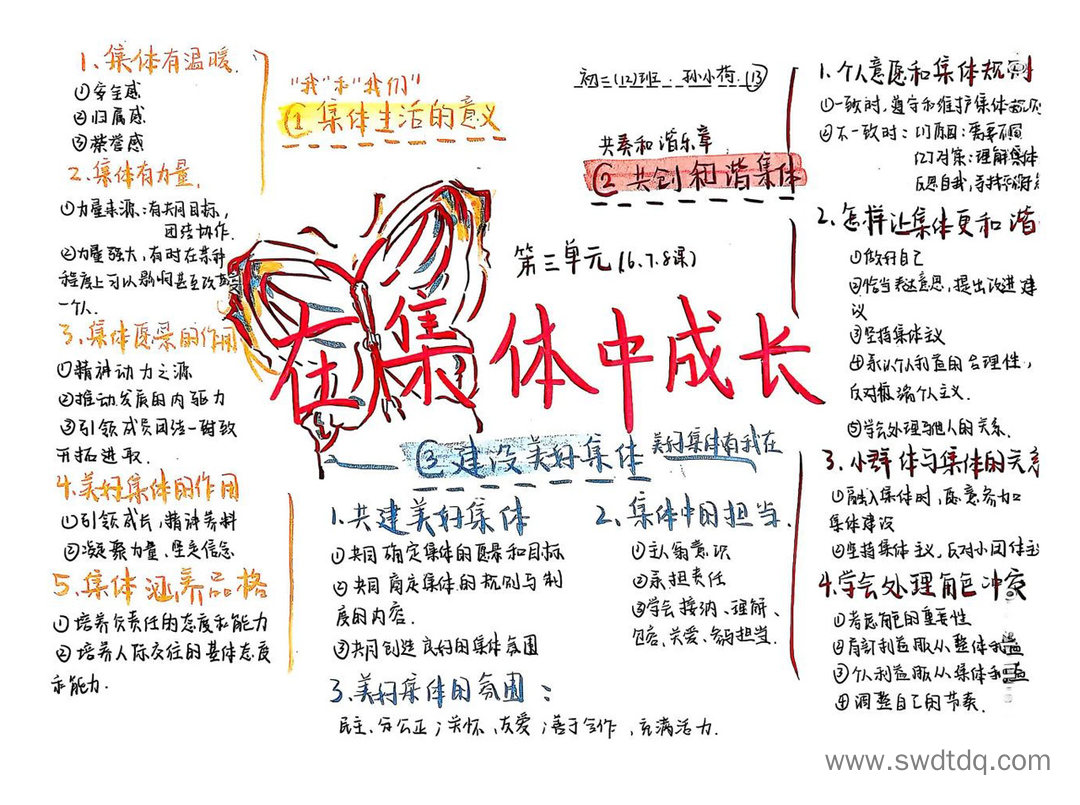 初二(12)班 孙小荷 (13)
第三单元(6.7.8课)
在集体中成长
"我"和"我们"
①集体生活的意义
1.集体有温暖.
①安全感
②归属感
③荣誉感
2.集体有力量.
①力量来源:有共同目标,
团结协作.
②力量强大,有时在某种
程度上可以影响甚至改变
一个人.
3.集体愿景的作用
①精神动力之源
②推动发展的内驱力
③引领成员团结一致
开拓进取.
4.美好集体的作用
①引领成长,精神养料
②凝聚力量、坚定信念
5.集体涵养品格
①培养负责任的态度和能力
②培养人际交往的基本态度
和能力.
共奏和谐乐章
②共创和谐集体
1.个人意愿和集体规则
①一致时,遵守和维护集体规则
②不一致时:(1)原因:需要不同
(2)对策:理解集体
反思自我,寻找平衡
2.怎样让集体更和谐
①做好自己
②恰当表达意思,提出改进建
议
③坚持集体主义
④承认个人利益的合理性,
反对极端个人主义.
⑤学会处理与他人的关系.
3.小群体与集体的关系
①融入集体时,愿意参加
集体建设
②坚持集体主义,反对小团体主
4.学会处理角色冲突
①考虑角色的重要性
②局部利益服从整体利益
③个人利益服从集体利益
④调整自己的节奏.
③建设美好集体
美好集体有我在
1.共建美好集体
①共同确定集体的愿景和目标
②共同商定集体的规则与制
度的内容.
③共同创造良好的集体氛围
2.集体中的担当.
①主人翁意识
②承担责任
③学会接纳、理解、
包容、关爱、勇于担当.
3.美好集体的氛围:
民主、公正;关怀、友爱;善于合作,充满活力.
www.swdtdq.com